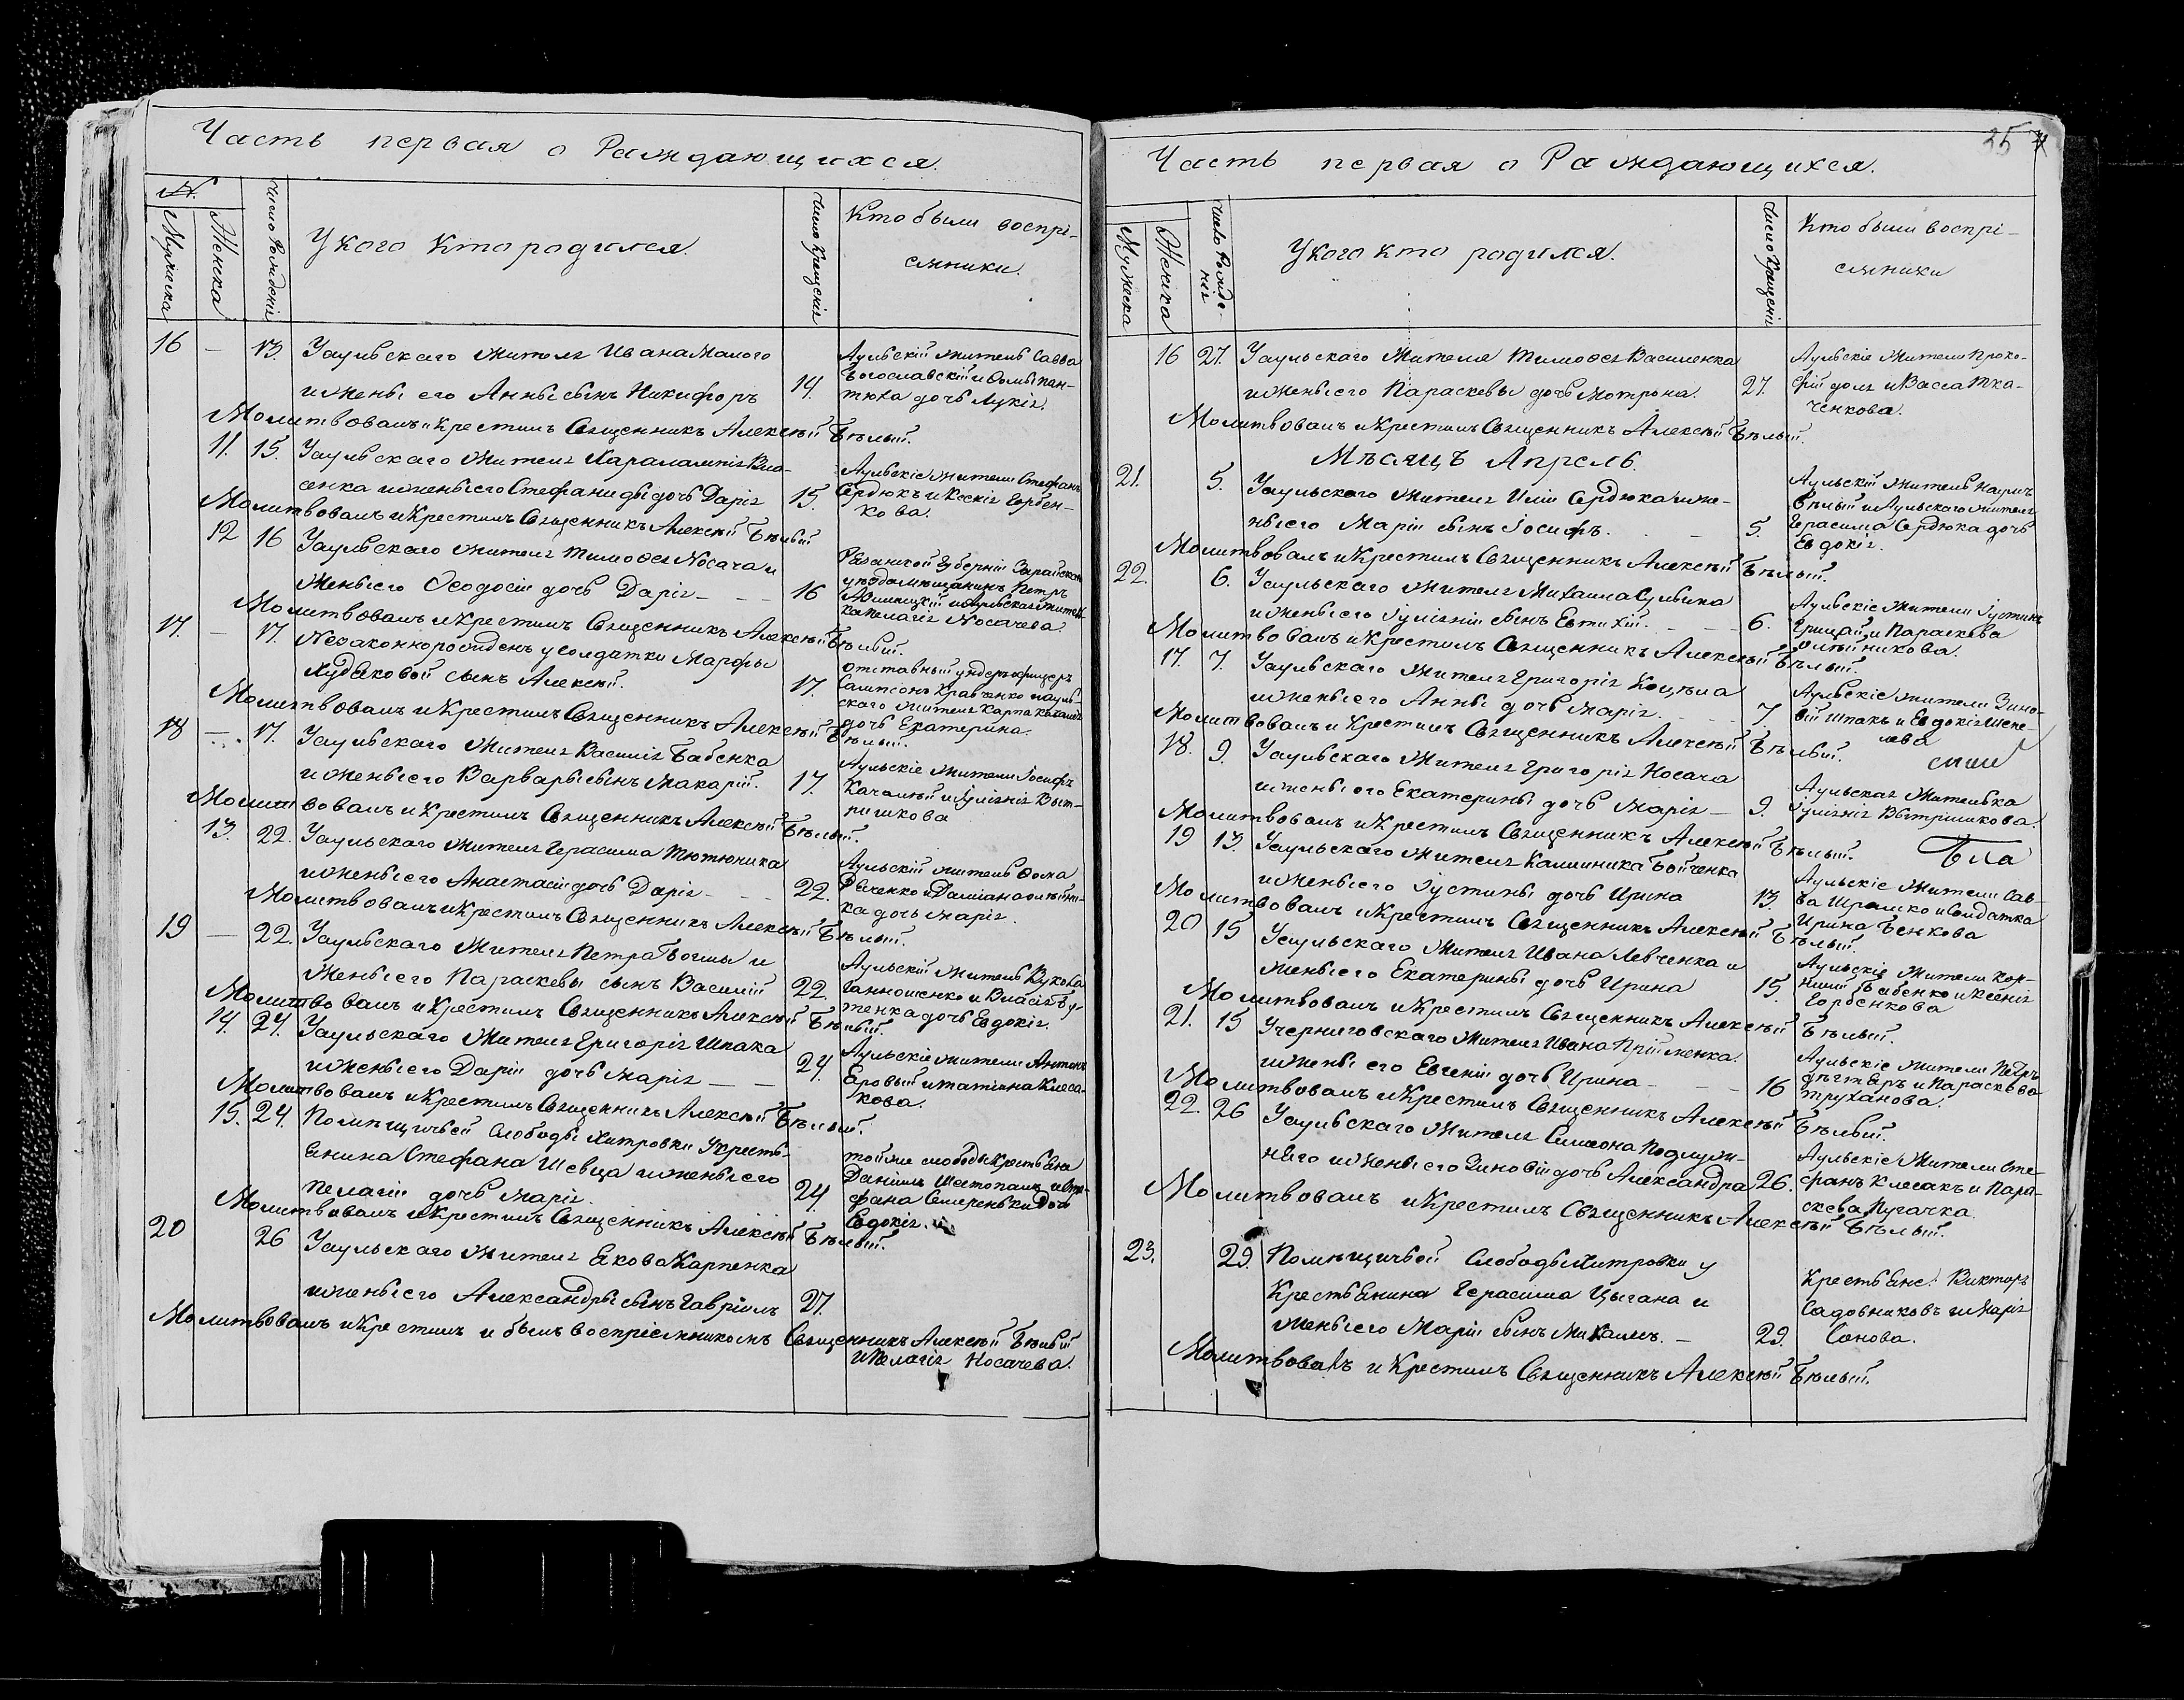 Часть первая о Раждающихся.
№.
Мужеска
Женска
Число Рожденія
У кого кто родился.
Число Крещенія
Кто были воспрі-
емники.
16 — 13. У аульскаго жителя Ивана Малого
и жены его Анны сынъ Никифоръ 14.
Аульскій житель Савва
Богославскій и Ѳомы Пан-
тюха дочь Лукія.
Молитвовалъ и Крестилъ Священникъ Алексѣй Бѣлый.
11. 15. У аульскаго жителя Харалампія Вла-
сенка и жены его Стефаниды дочь Дарія 15.
Аульскіе жители Стефанъ
Сердюкъ и Ксенія Горбен-
кова.
Молитвовалъ и Крестилъ Священникъ Алексѣй Бѣлый
12 16 У аульскаго жителя Тимоѳея Носача и
жены его Ѳеодосіи дочь Дарія — — 16
Рязанской Губерніи Зарайскаго
уѣзда мѣщанинъ Петръ
и аульская житель-
ка Пелагія Носачева.
Молитвовалъ и Крестилъ Священникъ Алексѣй Бѣлый.
17. — 17. Незаконнорожденъ у солдатки Марфы
Худяковой сынъ Алексѣй. 17.
Отставный ундеръ офицеръ
Сампсонъ Кравченко и ауль-
скаго жителя Карпа
дочь Екатерина.
Молитвовалъ и Крестилъ Священникъ Алексѣй Бѣлый.
18 — 17. У аульскаго жителя Василія Бабенка
и жены его Варвары сынъ Макарій. 17.
Аульскіе жители Іосифъ
Качалый и Іуліянія Выт-
ришкова
Молитвовалъ и Крестилъ Священникъ Алексѣй Бѣлый.
13. 22. У аульскаго жителя Герасима Тютюника
и жены его Анастасіи дочь Дарія — — 22.
Аульскій житель Ѳома
Рѣзченко и Даміана Олѣйни-
ка дочь Марія.
Молитвовалъ и Крестилъ Священникъ Алексѣй Бѣлый.
19 — 22. У аульскаго жителя Петра Богмы и
жены его Параскевы сынъ Василій 22.
Аульскій житель Вукола
Ганношенко и Власія Бу-
тенка дочь Евдокія.
Молитвовалъ и Крестилъ Священникъ Алексѣй Бѣлый.
14. 24. У аульскаго жителя Григорія Шпака
и жены его Даріи дочь Марія — — 24.
Аульскіе жители Антонъ
Еровый и Татіана Клеса-
кова.
Молитвовалъ и Крестилъ Священникъ Алексѣй Бѣлый.
15. 24. Помѣщичьей Слободы Хитровки У кресть-
янина Стефана Шевца и жены его
Пелагіи дочь Марія. 24.
той же слободы крестьяне
Даніилъ Шестопалъ и Сте-
фана Семереньки дочь
Евдокія.
Молитвовалъ и Крестилъ Священникъ Алексѣй Бѣлый.
20 26 У аульскаго жителя Якова Карпенка
и жены его Александры сынъ Гавріилъ 27.
Молитвовалъ и Крестилъ и былъ воспріемникомъ Священникъ Алексѣй Бѣлый
и Пелагія Носачева.
25
Часть первая о Раждающихся.
Мужеска
Женска
Число Рожде-
нія
У кого кто родился.
Число Крещенія
Кто были воспрі-
емники
16 27. У аульскаго жителя Тимоѳея Василенка
и жены его Параскевы дочь Мотрона. 27.
Аульскіе жители Проко-
фій Доля и Васса Тка-
ченкова.
Молитвовалъ и Крестилъ Священникъ Алексѣй Бѣлый.
Мѣсяцъ Апрель.
21. 5. У аульскаго жителя Иліи Сердюка и же-
ны его Маріи сынъ Іосифъ. — 5.
Аульскій житель Наумъ
Бѣлый и Аульскаго жителя
Герасима Сердюка дочь
Евдокія.
Молитвовалъ и Крестилъ Священникъ Алексѣй Бѣлый.
22. 6. У аульскаго жителя Михаила Сулыма
и жены его Іуліяніи сынъ Евтихій. — — 6.
Аульскіе жители Іустинъ
Грицай и Параскева
Олѣйникова.
Молитвовалъ и Крестилъ Священникъ Алексѣй Бѣлый.
17. 7. У аульскаго жителя Григорія Коцюпа
и жены его Анны дочь Марія. 7.
Аульскіе жители Зино-
вій Шпакъ и Евдокія Шепе-
лева
Молитвовалъ и Крестилъ Священникъ Алексѣй Бѣлый.
18. 9. У аульскаго жителя Григорія Носача
и жены его Екатерины дочь Марія — 9.
Аульская жителька
Іуліянія Вытришкова.
Молитвовалъ и Крестилъ Священникъ Алексѣй Бѣлый.
19 13. У аульскаго жителя Каллиника Бойченка
и жены его Іустины дочь Ирина 13.
Аульскіе жители Сав-
ва Шрамко и солдатка
Ирина Бенкова
Молитвовалъ и Крестилъ Священникъ Алексѣй Бѣлый.
20 15 У аульскаго жителя Ивана Левченка и
жены его Екатерины дочь Ирина 15.
Аульскіе жители Кор-
нилій Бабенко и Ксенія
Горбенкова
Молитвовалъ и Крестилъ Священникъ Алексѣй Бѣлый.
21. 15 У черниговскаго жителя Ивана Пріименка.
и жены его Евгеніи дочь Ирина — — — 16
Аульскіе жители Петръ
Дѣгтяръ и Параскева
Труханова.
Молитвовалъ и Крестилъ Священникъ Алексѣй Бѣлый.
22. 26 У аульскаго жителя Симеона Подлуж-
няго и жены его Зиновіи дочь Александра 26.
Аульскіе жители Сте-
фанъ Клесакъ и Пара-
скева Пугачка.
Молитвовалъ и Крестилъ Священникъ Алексѣй Бѣлый.
23. 29. Помѣщичьей Слободы Хитровки у
Крестьянина Герасима Цыгана и
жены его Маріи сынъ Михаилъ. — 29.
Крестьяне: Викторъ
Садовниковъ и Марія
Сонова.
Молитвовалъ и Крестилъ Священникъ Алексѣй Бѣлый.